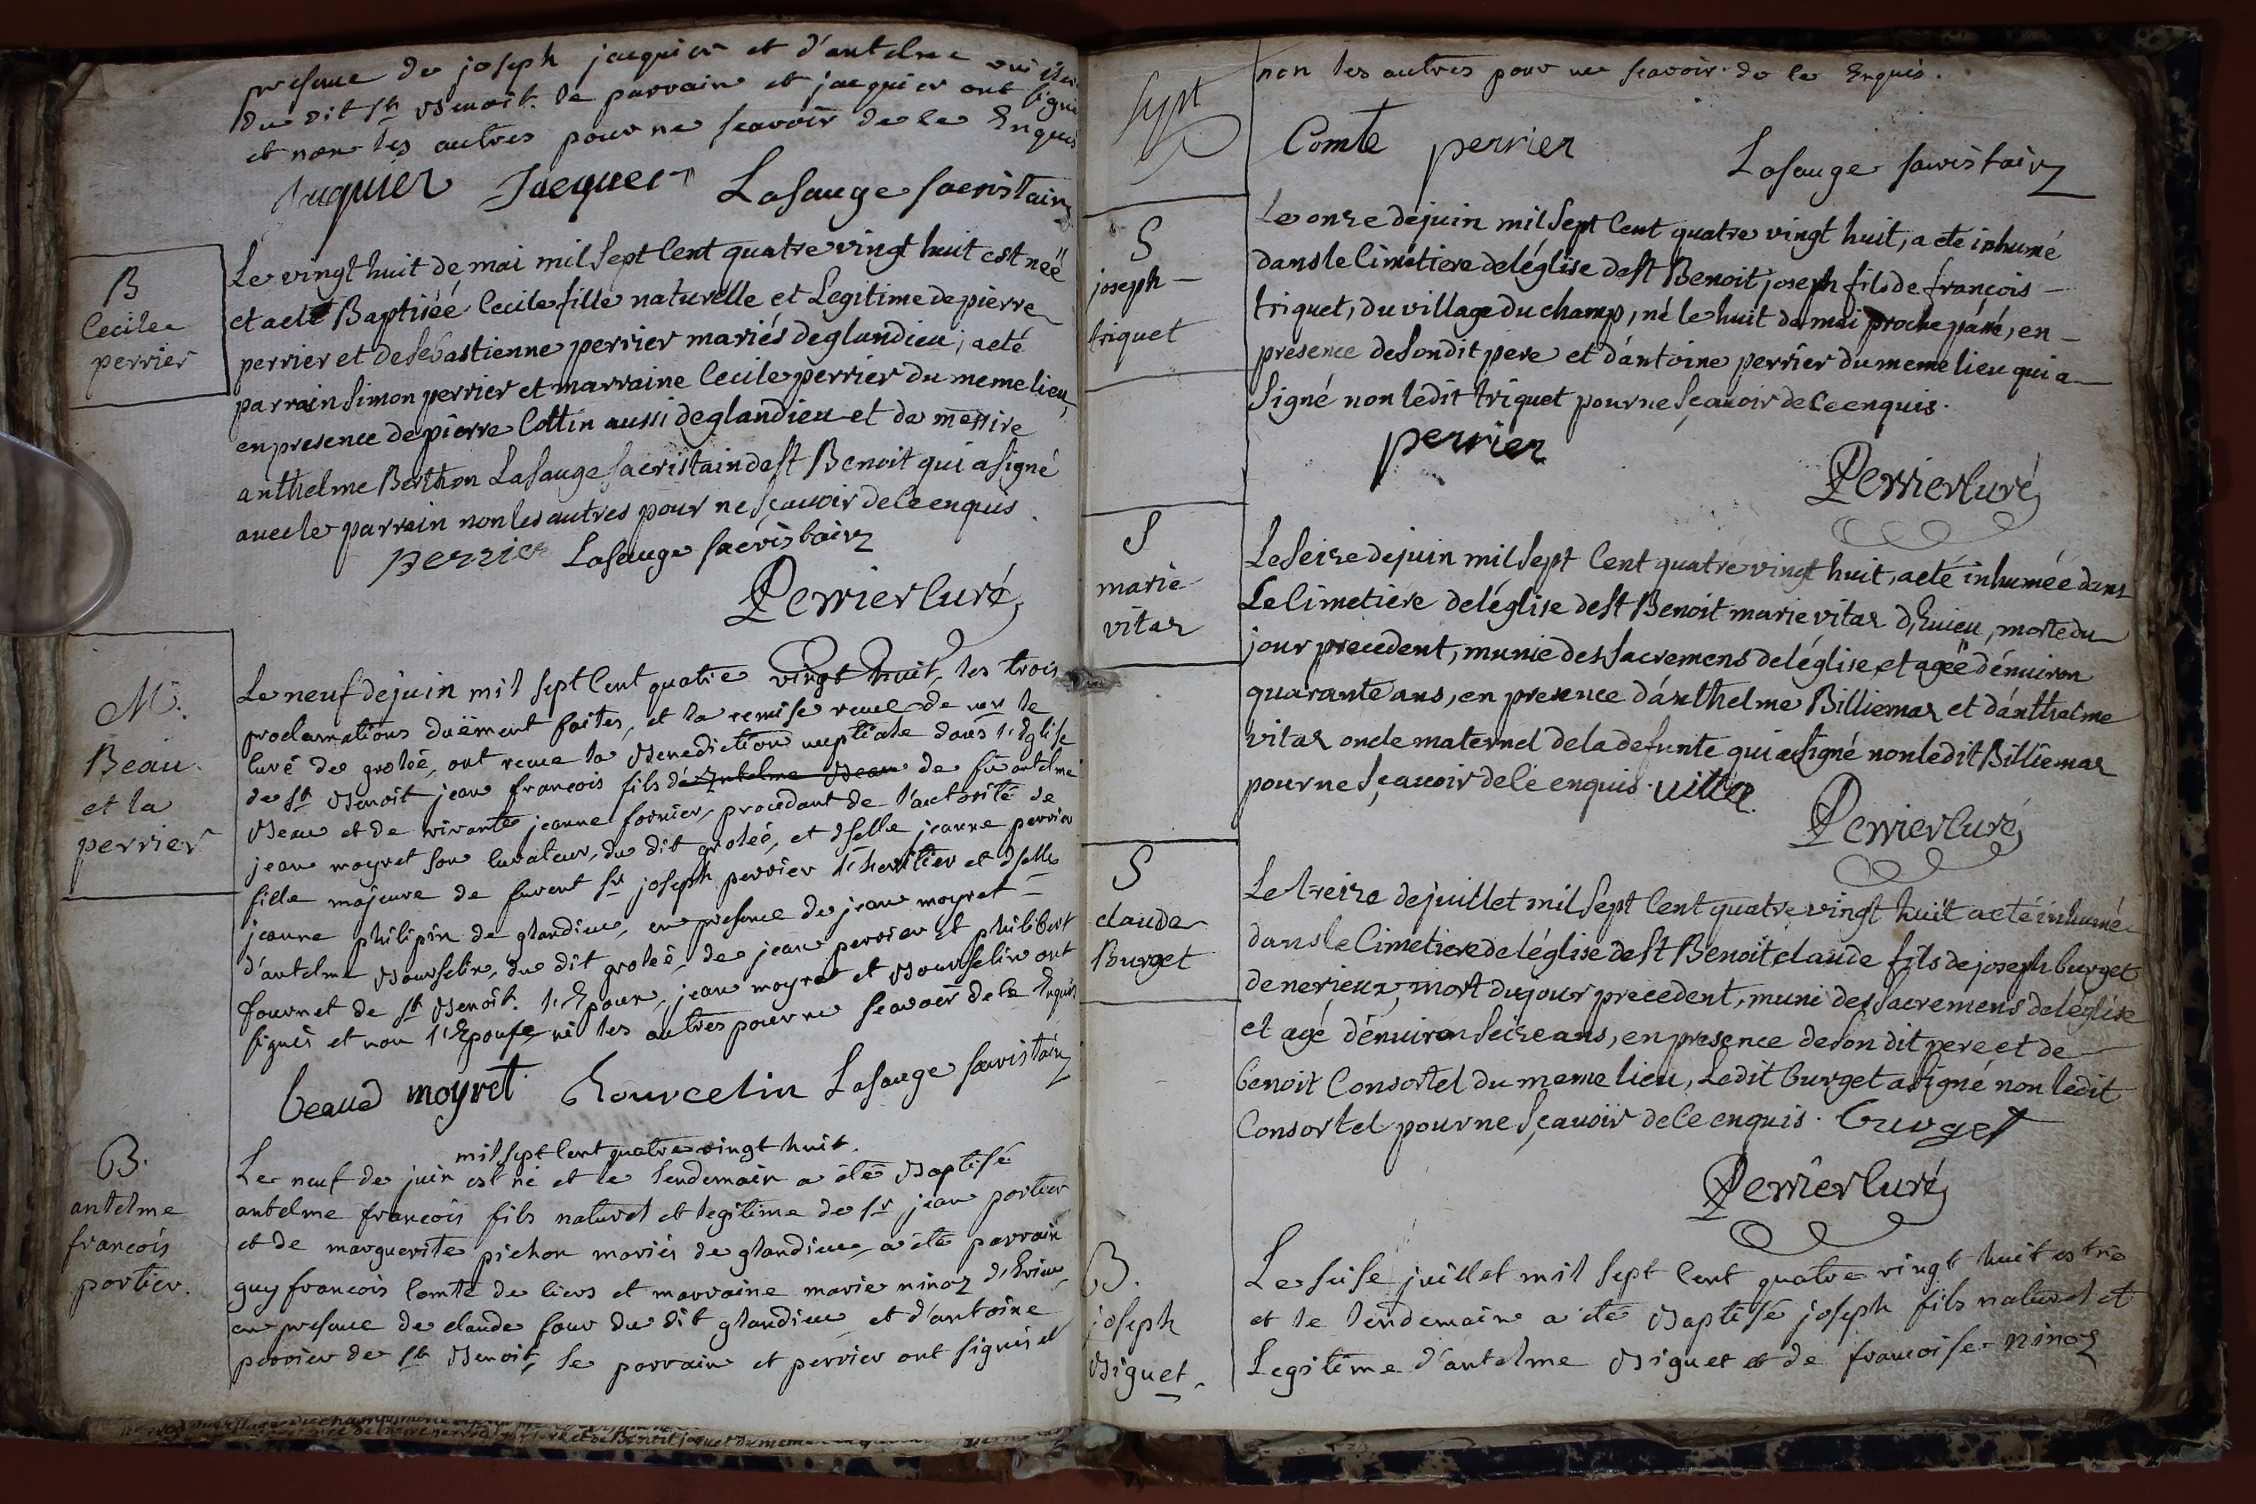 presence de joseph jacquier et d'antelme
du dit st Benoit. le parrain et jacquier ont signé
et non les autres pour ne scavoir de ce Enquis
Jacquier Jacquer Lasauge sacristain
B
Cecile
perrier
Le vingt huit de mai mil sept Cent quatre vingt huit est neë
et a eté Baptiséé Cecile fille naturelle et Legitime de pierre
perrier et de sebastienne perrier mariés de glandieu, a eté
parrain simon perrier et marraine Cecile perrier du meme lieu,
en presence de pierre Cottin aussi de glandieu et de messire
anthelme Berthon Lasauge sacristain de st Benoit qui a signé
avec le parrain non les autres pour ne sçavoir de ce enquis.
perrier Lasauge sacristain
Perrier Curé
M.
Beau.
et la
perrier
Le neuf de juin mil sept Cent quatre vingt huit, les trois
proclamations duëment faites, et la remise recue de mr le
Curé de groleé, ont recue la Benediction nuptiale dans l'Eglise
de st Benoit jean francois fils de antelme Beau de fu antelme
Beau et de vivante jeanne fornier, procedant de l'autorité de
jean moyret son Curateur, du dit groleé, et dselle jeanne perrier
fille majeure de furent sr joseph perrier l'heritier et dselle
jeanne philipin de glandieu, en presence de jean moyret
d'antelme Bourselin, du dit groleé, de jean perrier et philibert
fournet de st Benoit. l'Epoux, jean moyret et Bourselin ont
signés et non l'Epouse ni les autres pour ne scavoir de ce Enquis
beaud moyret bourcelin Lasauge sacristain
B.
antelme
francois
portier.
mil sept Cent quatre vingt huit.
Le neuf de juin est né et le lendemain a été Baptisé
antelme francois fils naturel et legitime de sr jean portier
et de marguerite pichon mariés de glandieu, a été parrain
guy francois Comte de liers et marraine marie ninoz d'Evieu,
en presence de claude four du dit glandieu et d'antoine
perrier de st Benoit, le parrain et perrier ont signés et
sept
non les autres pour ne scavoir de ce Enquis.
Comte perrier Lasauge sacristain
S
joseph
triquet
Le onze de juin mil sept Cent quatre vingt huit, a eté inhumé
dans le Cimétiere de léglise de st Benoit joseph fils de françois
triquet, du village du champ, né le huit de mai proche passé, en
presence de son dit pere et d'antoine perrier du meme lieu qui a
signé non ledit triquet pour ne sçavoir de ce enquis.
perrier
Perrier Curé
S
marie
vitaz
Le seize de juin mil sept Cent quatre vingt huit, a eté inhumée dans
Le Cimetiere de léglise de st Benoit marie vitaz d'Evieu, morte du
jour precedent, munie des sacremens de léglise, et ageë d'environ
quarante ans, en presence d'anthelme Billiemaz et d'anthelme
vitaz oncle maternel de la defunte qui a signé non ledit Billiemaz
pour ne sçavoir de ce enquis. vitta
Perrier Curé
S
claude
Burget
Le treize de juillet mil sept Cent quatre vingt huit a eté inhumé
dans le Cimetiere de léglise de st Benoit claude fils de joseph burget
de nerieux, mort du jour precedent, muni des sacremens de léglise
et agé d'environ seize ans, en presence de son dit pere et de
benoit Consortel du meme lieu, Ledit burget a signé non ledit
Consortel pour ne sçavoir de ce enquis. burget
Perrier Curé
B.
joseph
Biguet
Le seise juillet mil sept Cent quatre vingt huit est né
et le lendemain a été Baptisé joseph fils naturel et
Legitime d'antelme Biguet et de francoise ninoz